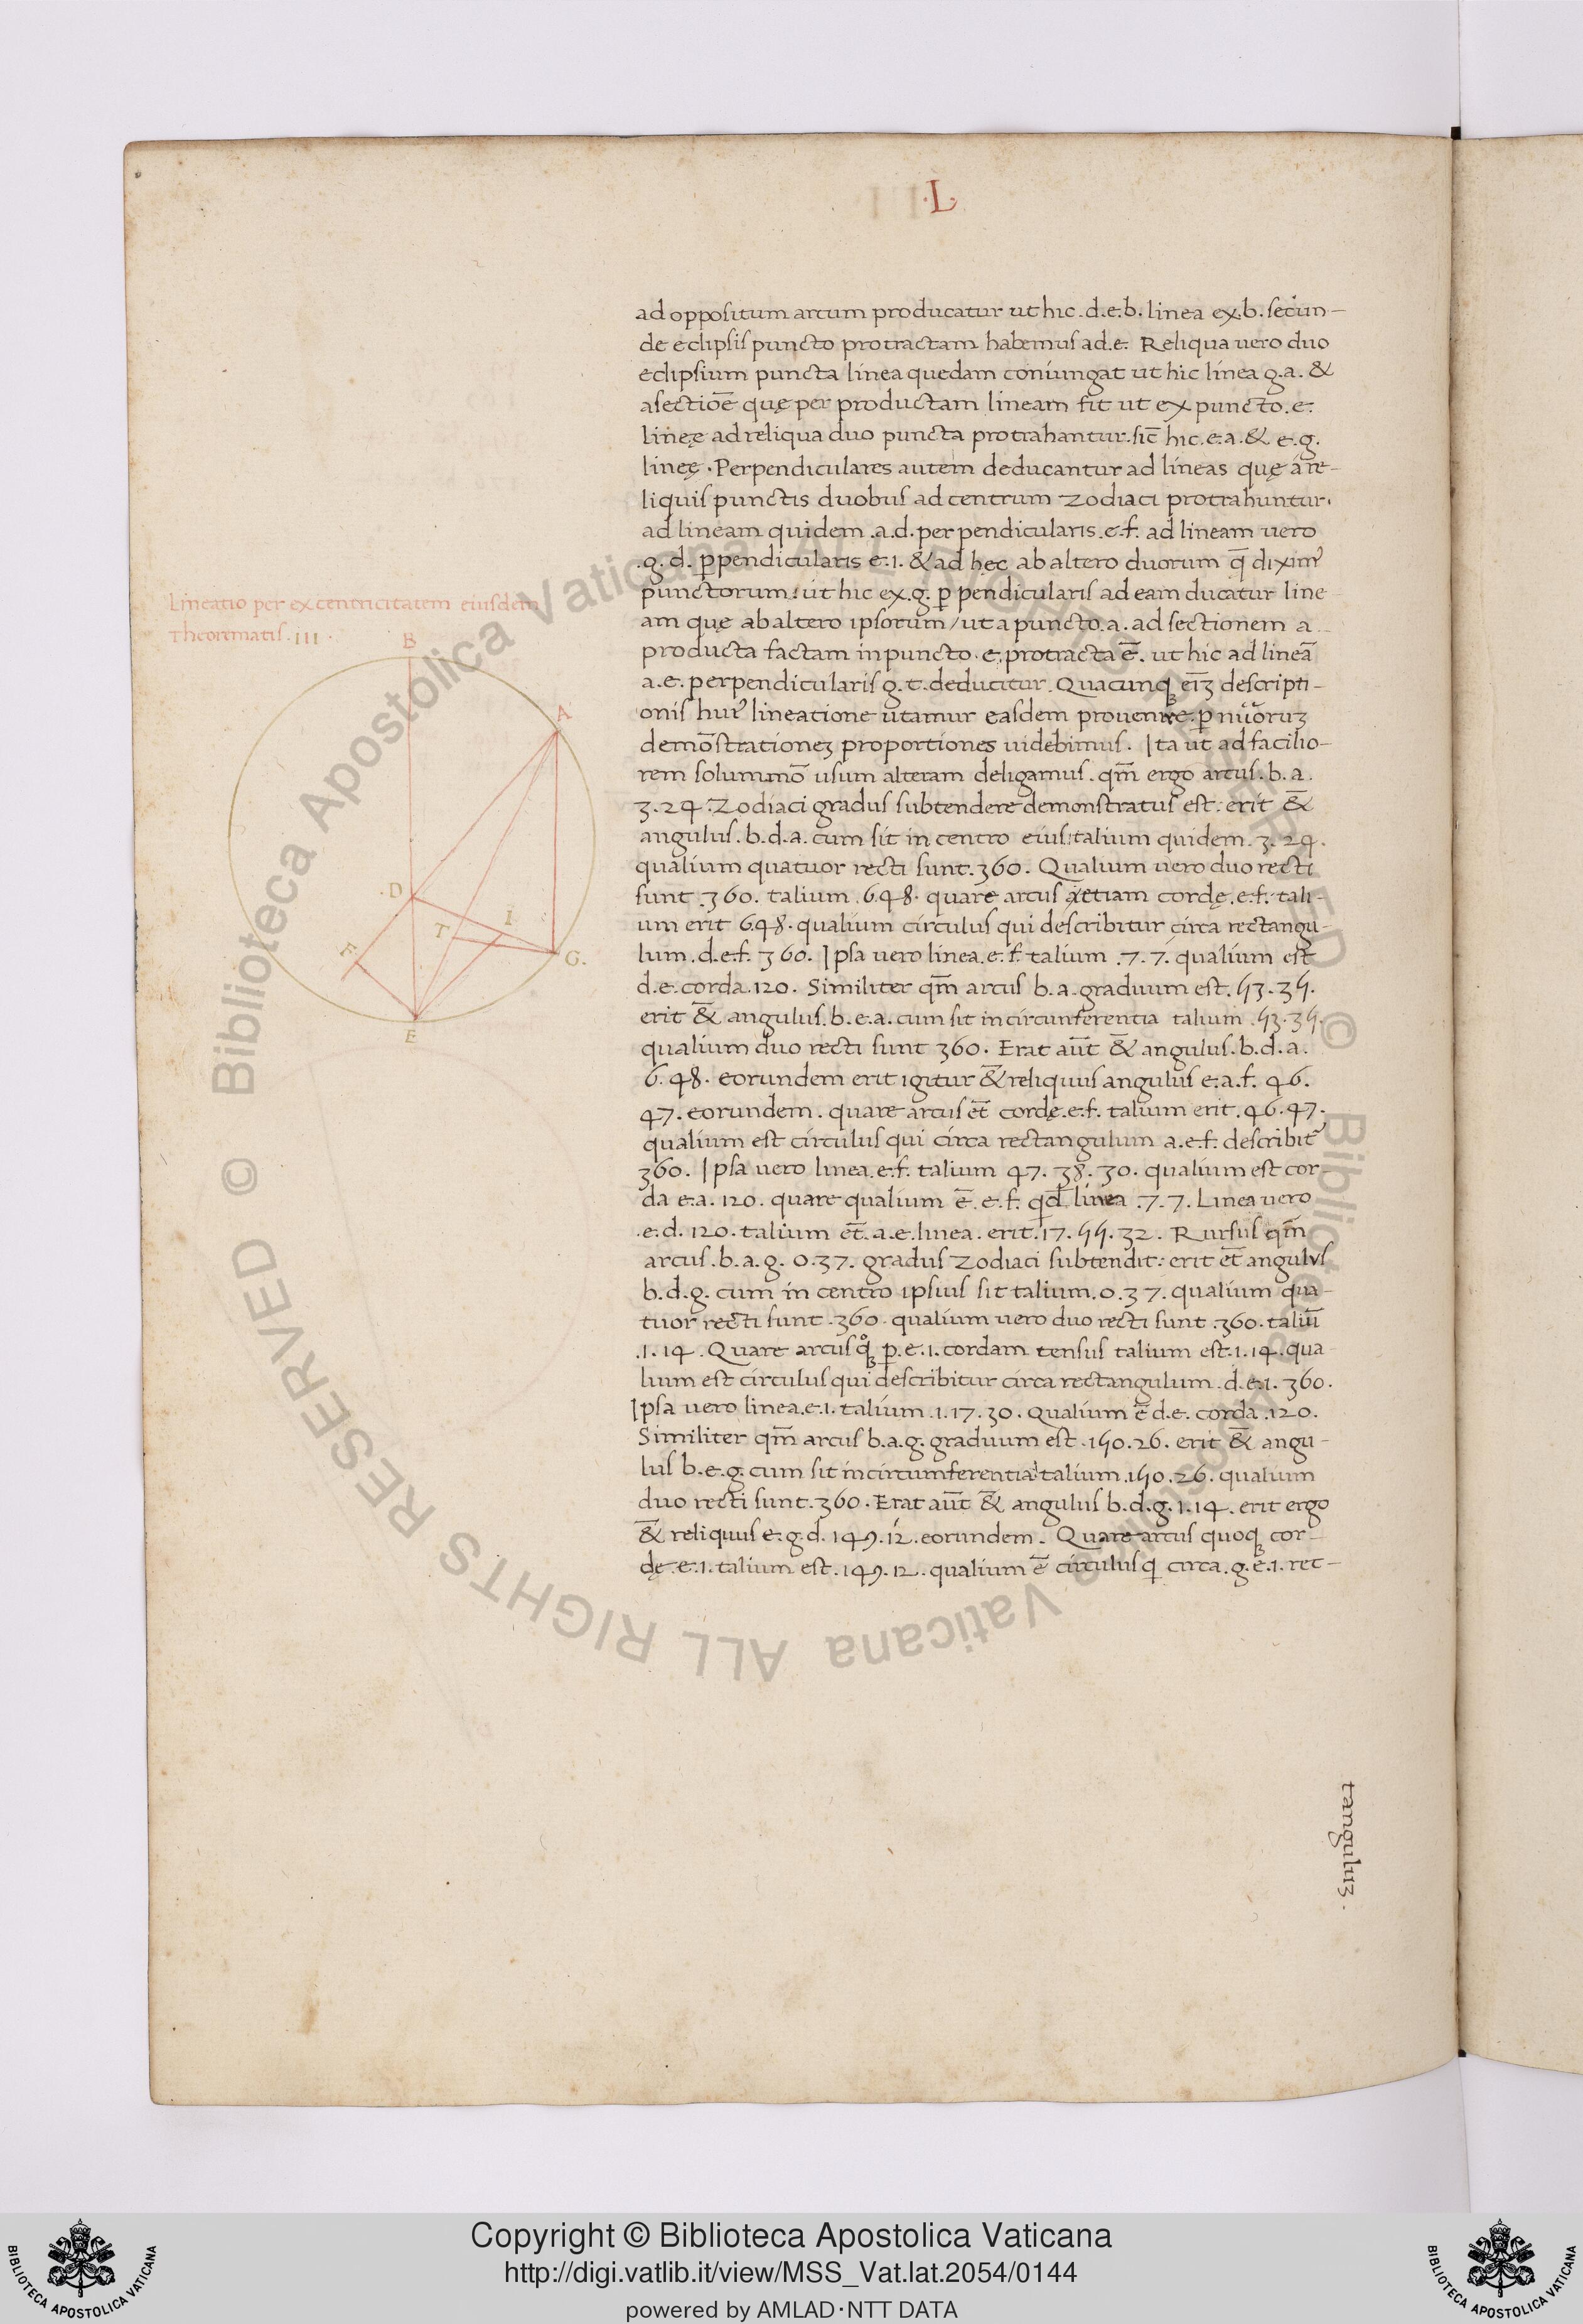 ·L·
ad oppositum arcum producatur ut hic .d.e.b. linea ex .b. secun-
de eclipsis puncto protractam habemus ad .e. Reliqua uero duo
eclipsium puncta linea quedam coniungat ut hic linea g.a. &
a sectiōe quę per productam lineam fit ut ex puncto .e.
lineę ad reliqua duo puncta protrahantur. sic̄ hic .e.a. & e.g.
lineę . Perpendiculares autem deducantur ad lineas quę a re-
liquis punctis duobus ad centrum zodiaci protrahuntur.
ad lineam quidem .a.d. perpendicularis .e.f. ad lineam uero
.g.d. ꝑpendicularis e.i. & ad hęc ab altero duorum q̄ diximꝰ
punctorum: ut hic ex .g. ꝑpendicularis ad eam ducatur line
am que ab altero ipsorum / ut a puncto .a. ad sectionem a
producta factam in puncto .e. protracta ē. ut hic ad lineā
a.e. perpendicularis g.t. deducitur. Quacunqꝫ eiꝫ descripti-
onis huiꝰ lineatione utamur easdem prouenire ꝑ nūoruꝫ
demōstrationeꝫ proportiones uidebimus. Ita ut ad facilio-
rem solummō usum alteram deligamus. qm̄ ergo arcus .b.a.
3.24. Zodiaci gradus subtendere demonstratus est: erit &
angulus .b.d.a. cum sit in centro eius: talium quidem .3.24.
qualium quatuor recti sunt .360. Qualium uero duo recti
sunt .360. talium .6.48. quare arcus etiam cordę .e.f. tali-
um erit 6.48. qualium circulus qui describitur circa rectangu-
lum .d.e.f. 360. Ipsa uero linea .e.f. talium .7.7. qualium est
d.e. corda .120. Similiter qm̄ arcus b.a. graduum est .53.35.
erit & angulus .b.e.a. cum sit in circunferentia talium .53.35.
qualium duo recti sunt 360. Erat aūt & angulus .b.d.a.
6.48. eorundem erit igitur & reliquus angulus e.a.f. 46.
47. eorundem. quare arcus et̄ cordę .e.f. talium erit .46.47.
qualium est circulus qui circa rectangulum a.e.f. describit᷑
360. Ipsa uero linea .e.f. talium 47.38.30. qualium est cor-
da e.a. 120. quare qualium ē .e.f. qd̄ linea .7.7. Linea uero
.e.d. 120. talium et̄ .a.e. linea . erit .17.55.32. Rursus qm̄
arcus .b.a.g. 0.37. gradus zodiaci subtendit: erit et̄ angulus
b.d.g. cum in centro ipsius sit talium .0.37. qualium qua-
tuor recti sunt .360. qualium uero duo recti sunt .360. taliū
.1.14. Quare arcus qͦqꝫ ꝑ .e.i. cordam tensus talium est .1.14. qua-
lium est circulus qui describitur circa rectangulum .d.e.i. 360.
Ipsa uero linea .e.i. talium .1.17.30. Qualium ē d.e. corda .120.
Similiter qm̄ arcus b.a.g. graduum est .150.26. erit & angu-
lus b.e.g. cum sit in circumferentia talium .150.26. qualium
duo recti sunt .360. Erat aūt & angulus b.d.g. 1.14. erit ergo
& reliquus e.g.d. 149.12. eorundem. Quare arcus quoqꝫ cor-
dę .e.i. talium est .149.12. qualium ē circulus qͥ circa .g.e.i. rec-
tanguluꝫ.
Lineatio per excentricitatem eiusdem
Theorematis .III.
B
A
.D
T
I
F
G.
E
© Biblioteca Apostolica Vaticana ALL RIGHTS RESERVED © Biblioteca Apostolica Vaticana ALL RIGHTS RESERVED
Copyright © Biblioteca Apostolica Vaticana
http://digi.vatlib.it/view/MSS_Vat.lat.2054/0144
powered by AMLAD·NTT DATA
BIBLIOTECA APOSTOLICA VATICANA
BIBLIOTECA APOSTOLICA VATICANA